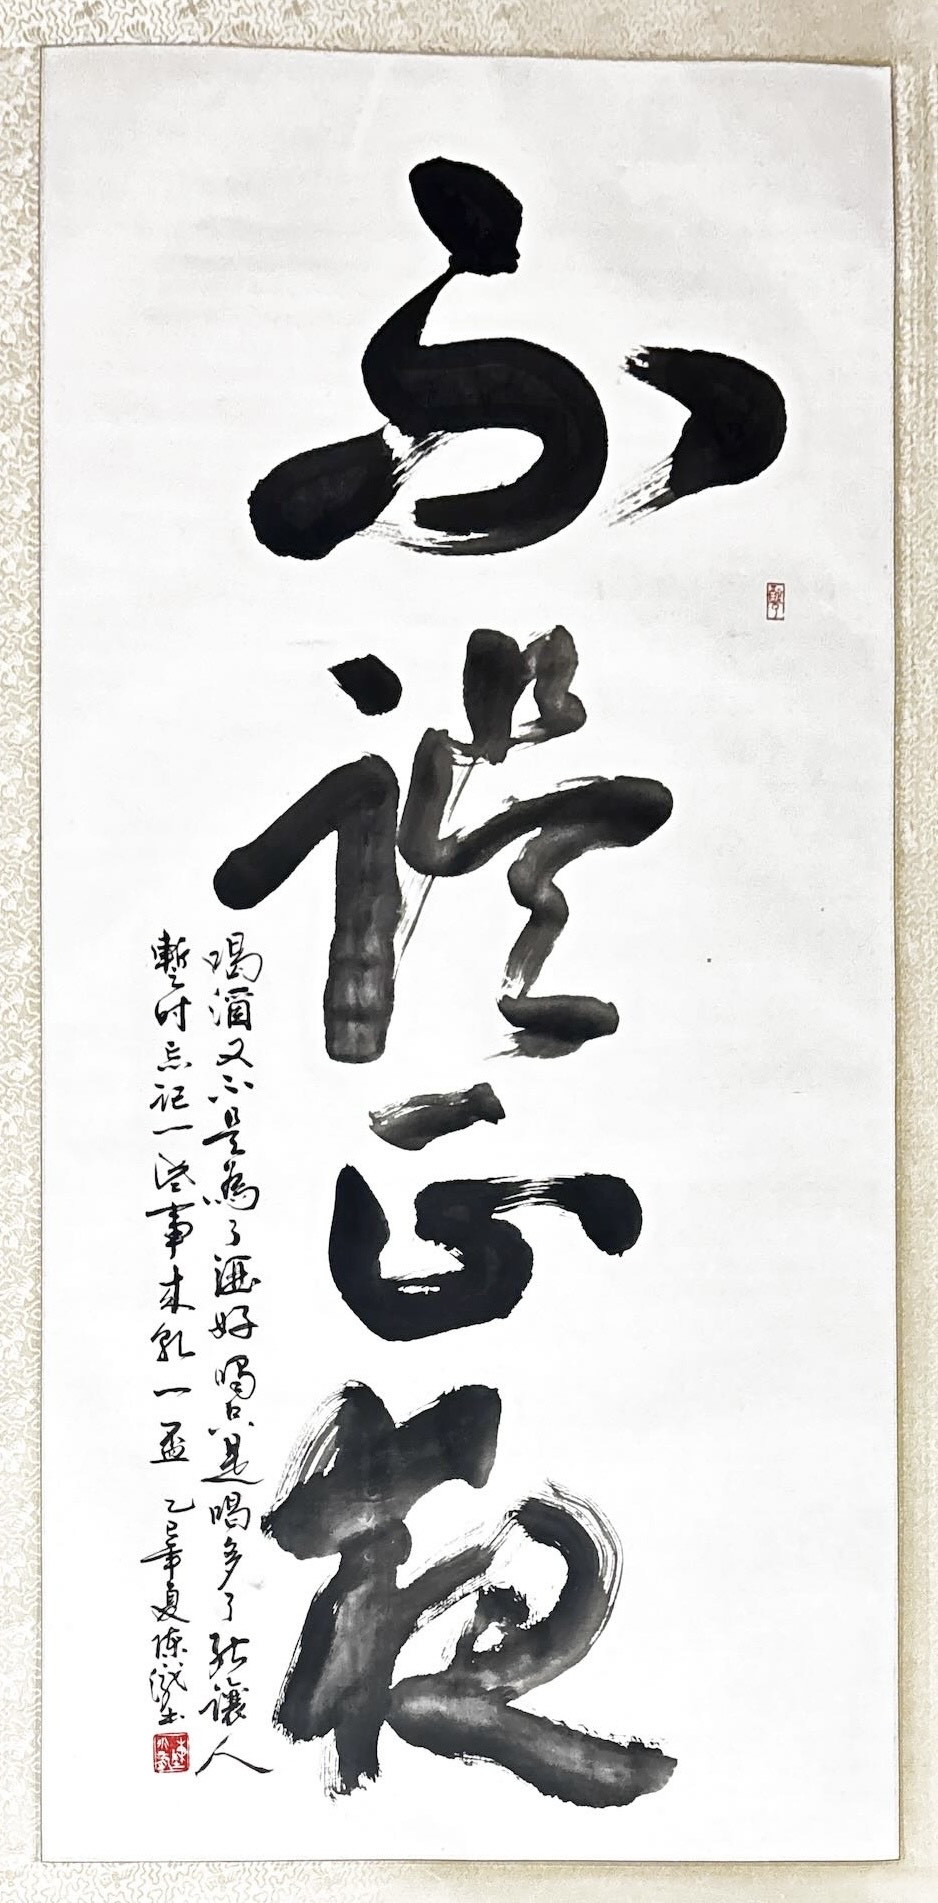 不正夜
喝酒又不是為了酒好喝只是喝多了能讓人
暫时忘记一些事来乾一盃 乙巳年夏陳